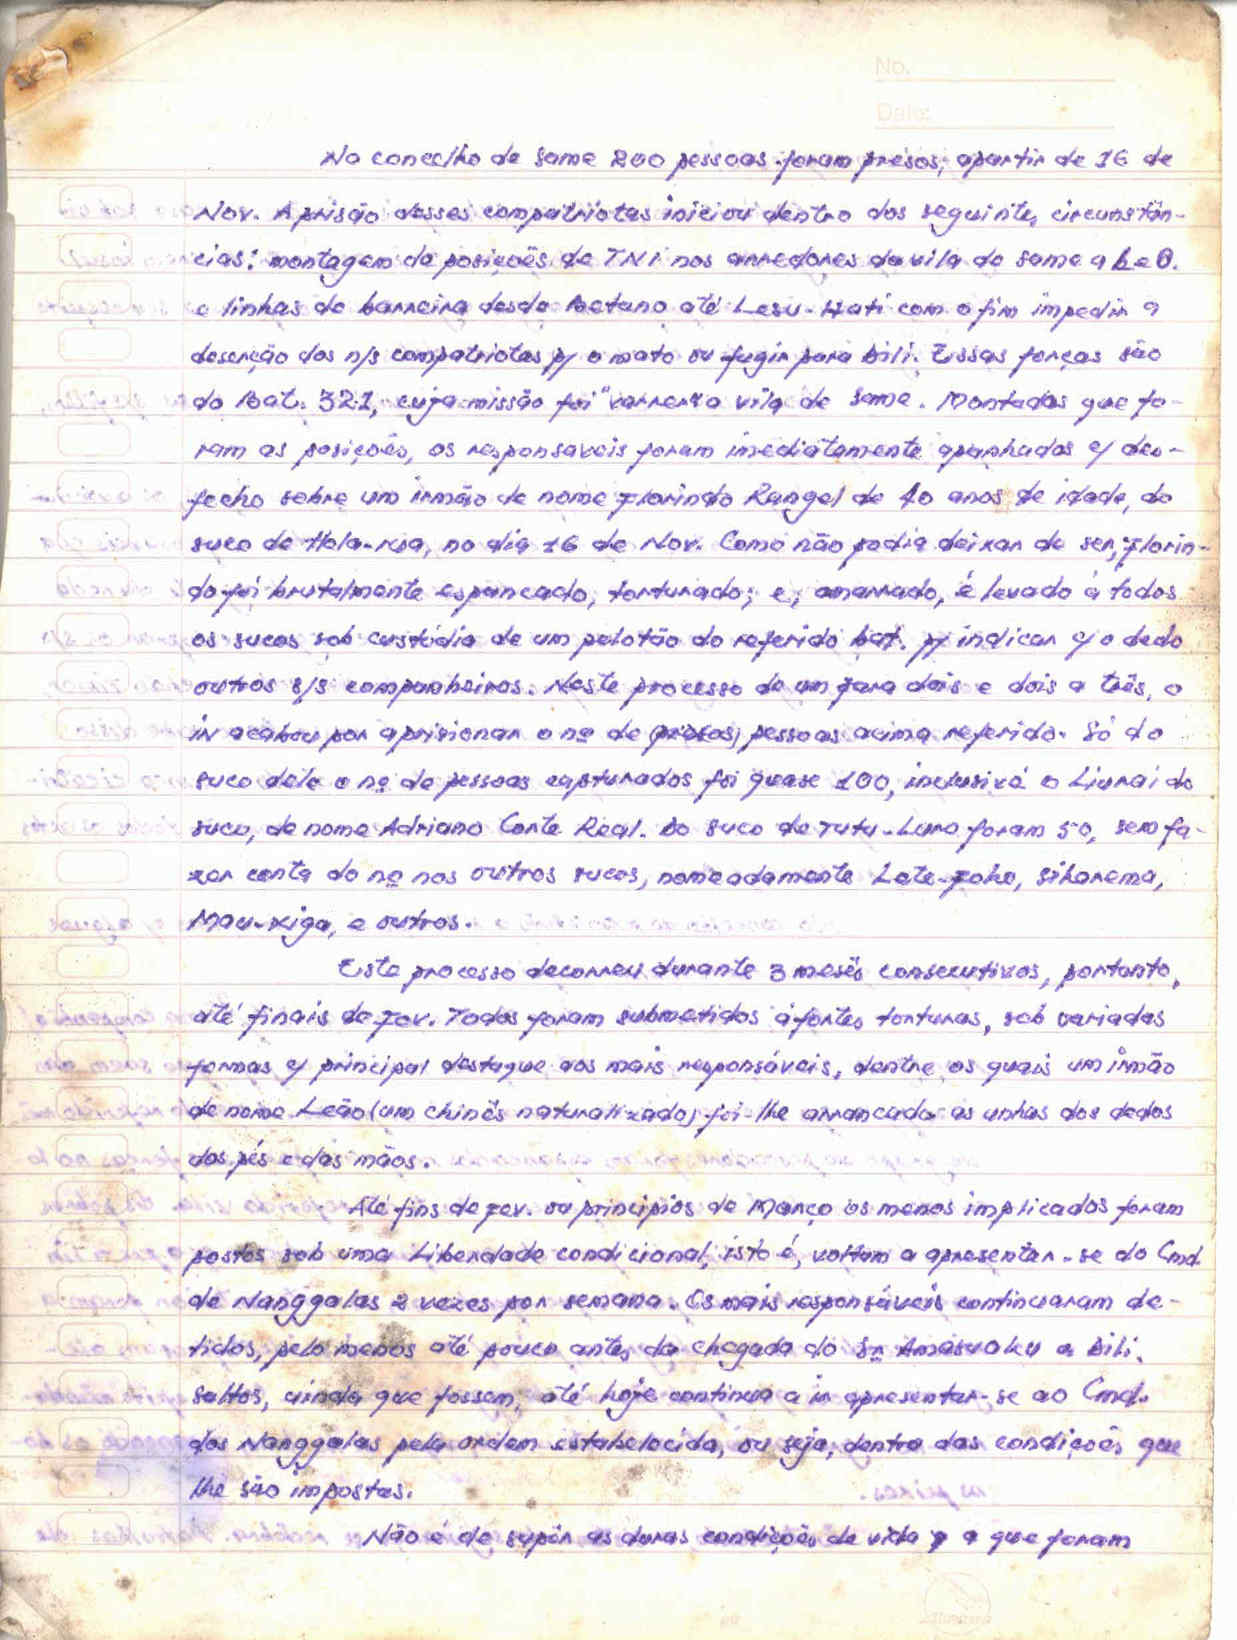 No.
Date:
No concelho de Same 200 pessoas foram presos, apartir de 16 de
Nov. A prisão desses compatriotas iniciou dentro dos seguintes circunstân-
cias: montagem de posições de TNI nos arredores da vila de Same a L e O.
e linhas de barreira desde Betano até Lesu-Hati com o fim impedir a
deserção dos n/s compatriotas p/ o mato ou fugir para Dili. Essas forças são
do Bat. 321, cuja missão foi "varrer" a vila de Same. Montadas que fo-
ram as posições, os responsaveis foram imediatamente apanhados c/ des-
fecho sobre um irmão de nome Florindo Rangel de 40 anos de idade, do
suco de Hola-rua, no dia 16 de Nov. Como não podia deixar de ser, Florin-
do foi brutalmente espancado, torturado; e, amarrado, é levado á todos
os sucos sob custódia de um pelotão do referido bat. p/ indicar c/ o dedo
outros s/s companheiros. Neste processo de um para dois e dois a três, o
in acabou por aprisionar o nº de (presos) pessoas acima referido. Só do
suco dele o nº de pessoas capturados foi quase 100, inclusivé o Liurai do
suco, de nome Adriano Corte Real. Do suco de Tutu-Luro foram 50, sem fa-
zer conta do nº nos outros sucos, nomeadamente Lete-foho, Sikarema,
Mau-xiga, e outros.
Este processo decorreu durante 3 mesês consecutivos, portanto,
até finais de Fev. Todos foram submetidos á fortes torturas, sob variadas
formas c/ principal destaque aos mais responsáveis, dentre os quais um irmão
de nome Leão (um chinês naturalizado) foi-lhe arrancado as unhas dos dedos
dos pés e das mãos.
Até fins de Fev. ou principios de Março os menos implicados foram
postos sob uma Liberdade condicional, isto é, voltam a apresentar-se do Cmd.
de Nanggalas 2 vezes por semana. Os mais responsáveis continuaram de-
tidos, pelo menos até pouco antes da chegada do Sr. Amos Wako a Dili.
Soltos, ainda que fossem, até hoje continua a ir apresentar-se ao Cmd.
dos Nanggalas pela ordem estabelecida, ou seja, dentro das condições que
lhe são impostas.
Não é de supôr as duras condições de vida a que foram